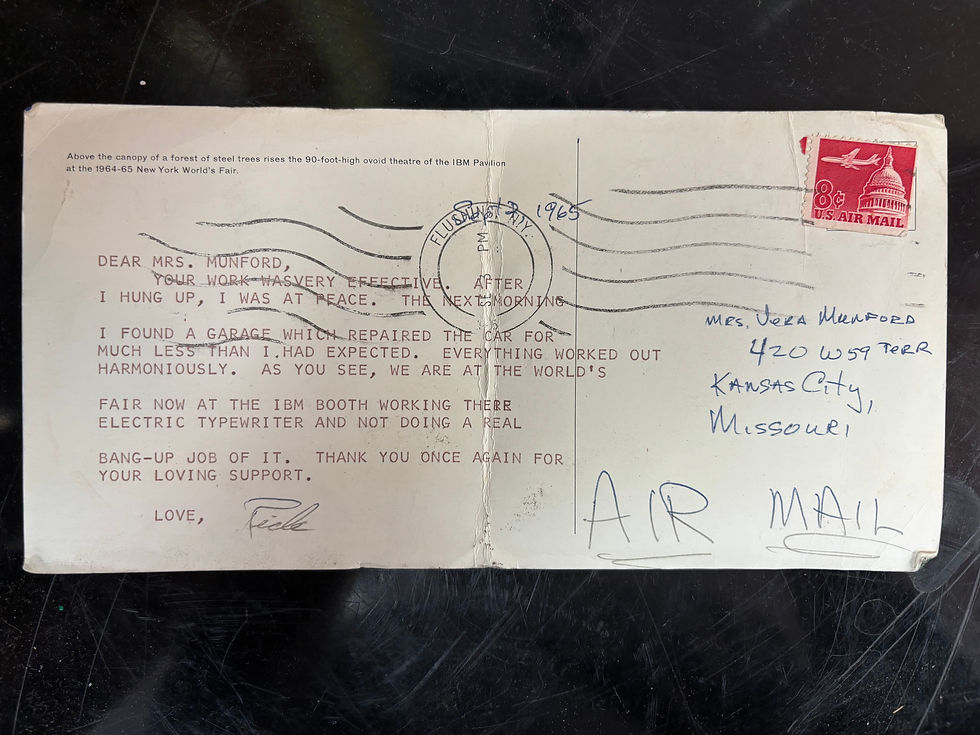 Above the canopy of a forest of steel trees rises the 90-foot-high ovoid theatre of the IBM Pavilion
at the 1964-65 New York World's Fair.
8¢
U.S. AIR MAIL
FLUSHING, N.Y.
PM
1965
DEAR MRS. MUNFORD,
YOUR WORK WASVERY EFFECTIVE. AFTER
I HUNG UP, I WAS AT PEACE. THE NEXT MORNING
I FOUND A GARAGE WHICH REPAIRED THE CAR FOR
MUCH LESS THAN I.HAD EXPECTED. EVERYTHING WORKED OUT
HARMONIOUSLY. AS YOU SEE, WE ARE AT THE WORLD'S
FAIR NOW AT THE IBM BOOTH WORKING THERE
ELECTRIC TYPEWRITER AND NOT DOING A REAL
BANG-UP JOB OF IT. THANK YOU ONCE AGAIN FOR
YOUR LOVING SUPPORT.
LOVE,
MRS. VERA MUNFORD
420 W 59 TERR
KANSAS CITY,
MISSOURI
AIR MAIL